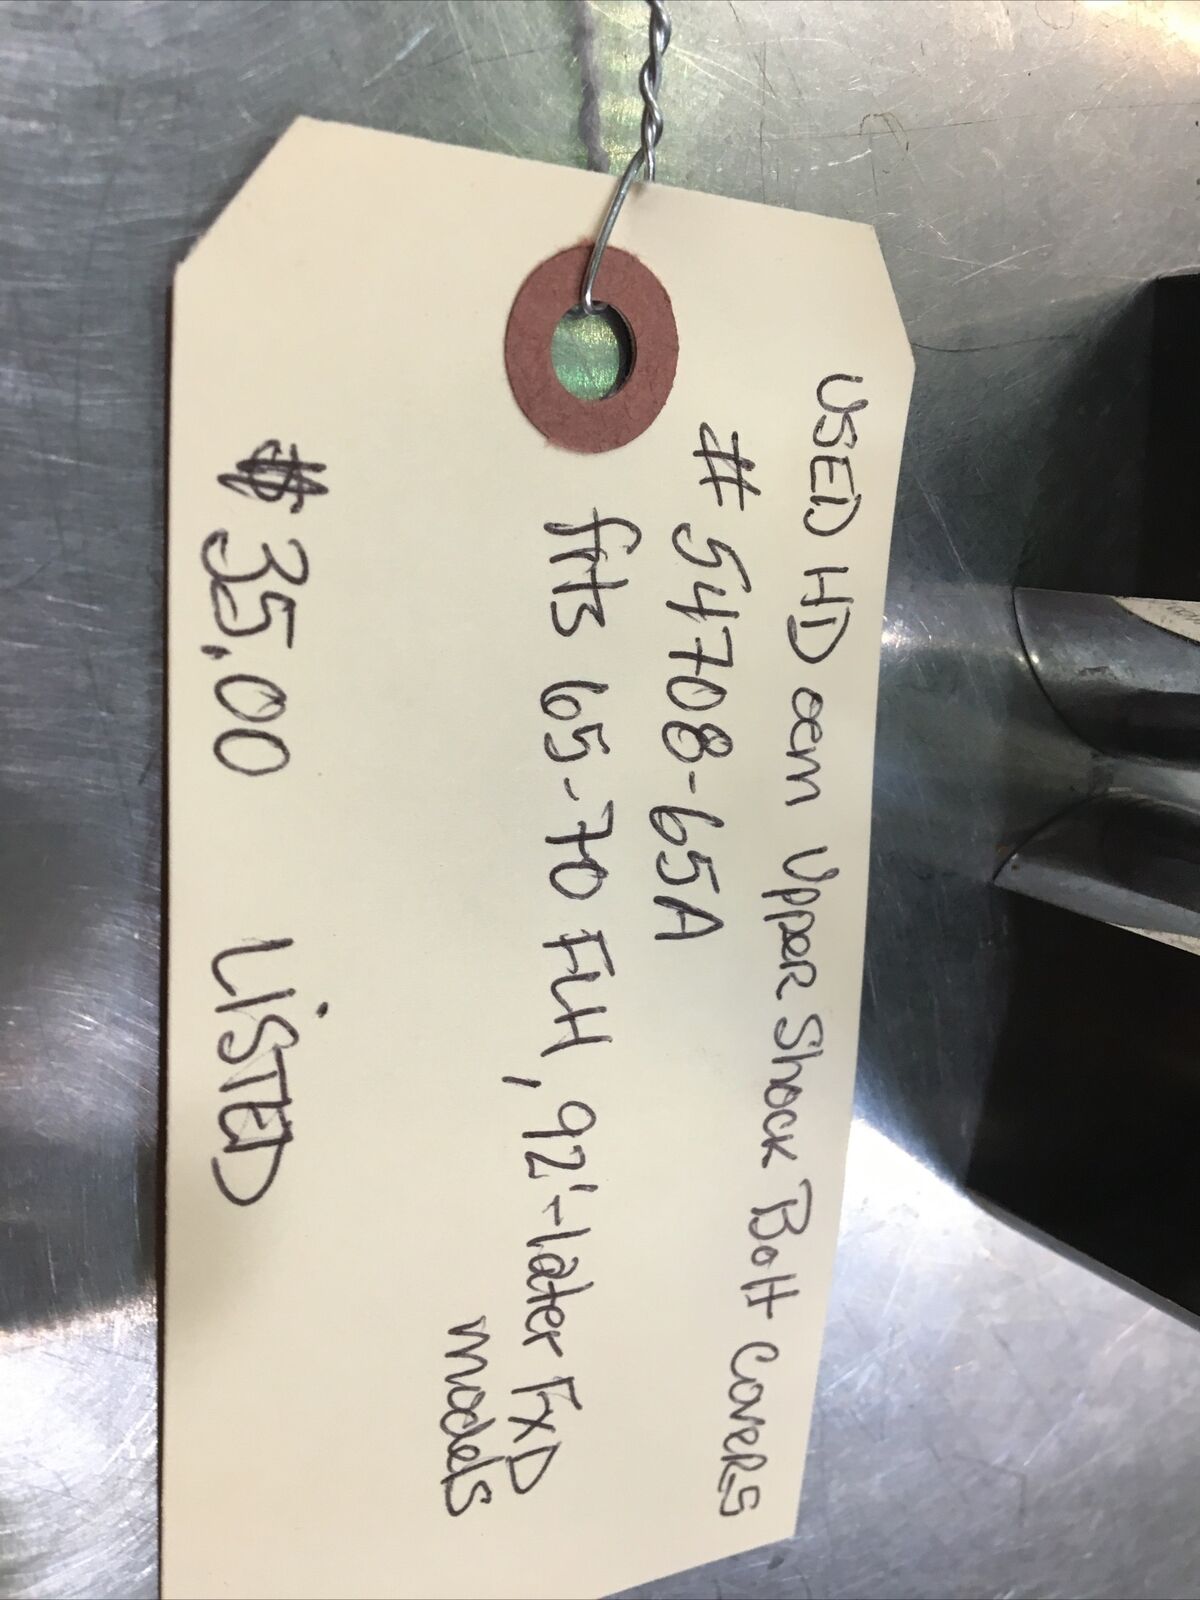 USED HD oem Upper Shock Bolt Covers
# 54708-65A
fits 65-70 FLH, 92'-later FXD
models
$35.00 LISTED